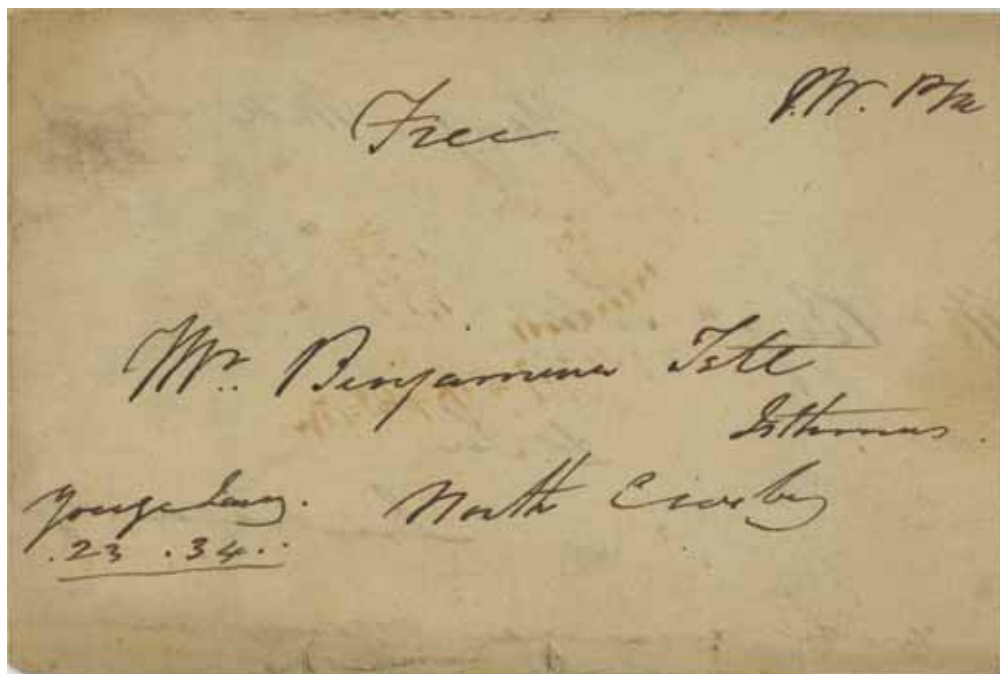 Free
Mr. Benjamin Tett
Isthmus.
Yonge Jany. North Crosby
.23 .34.